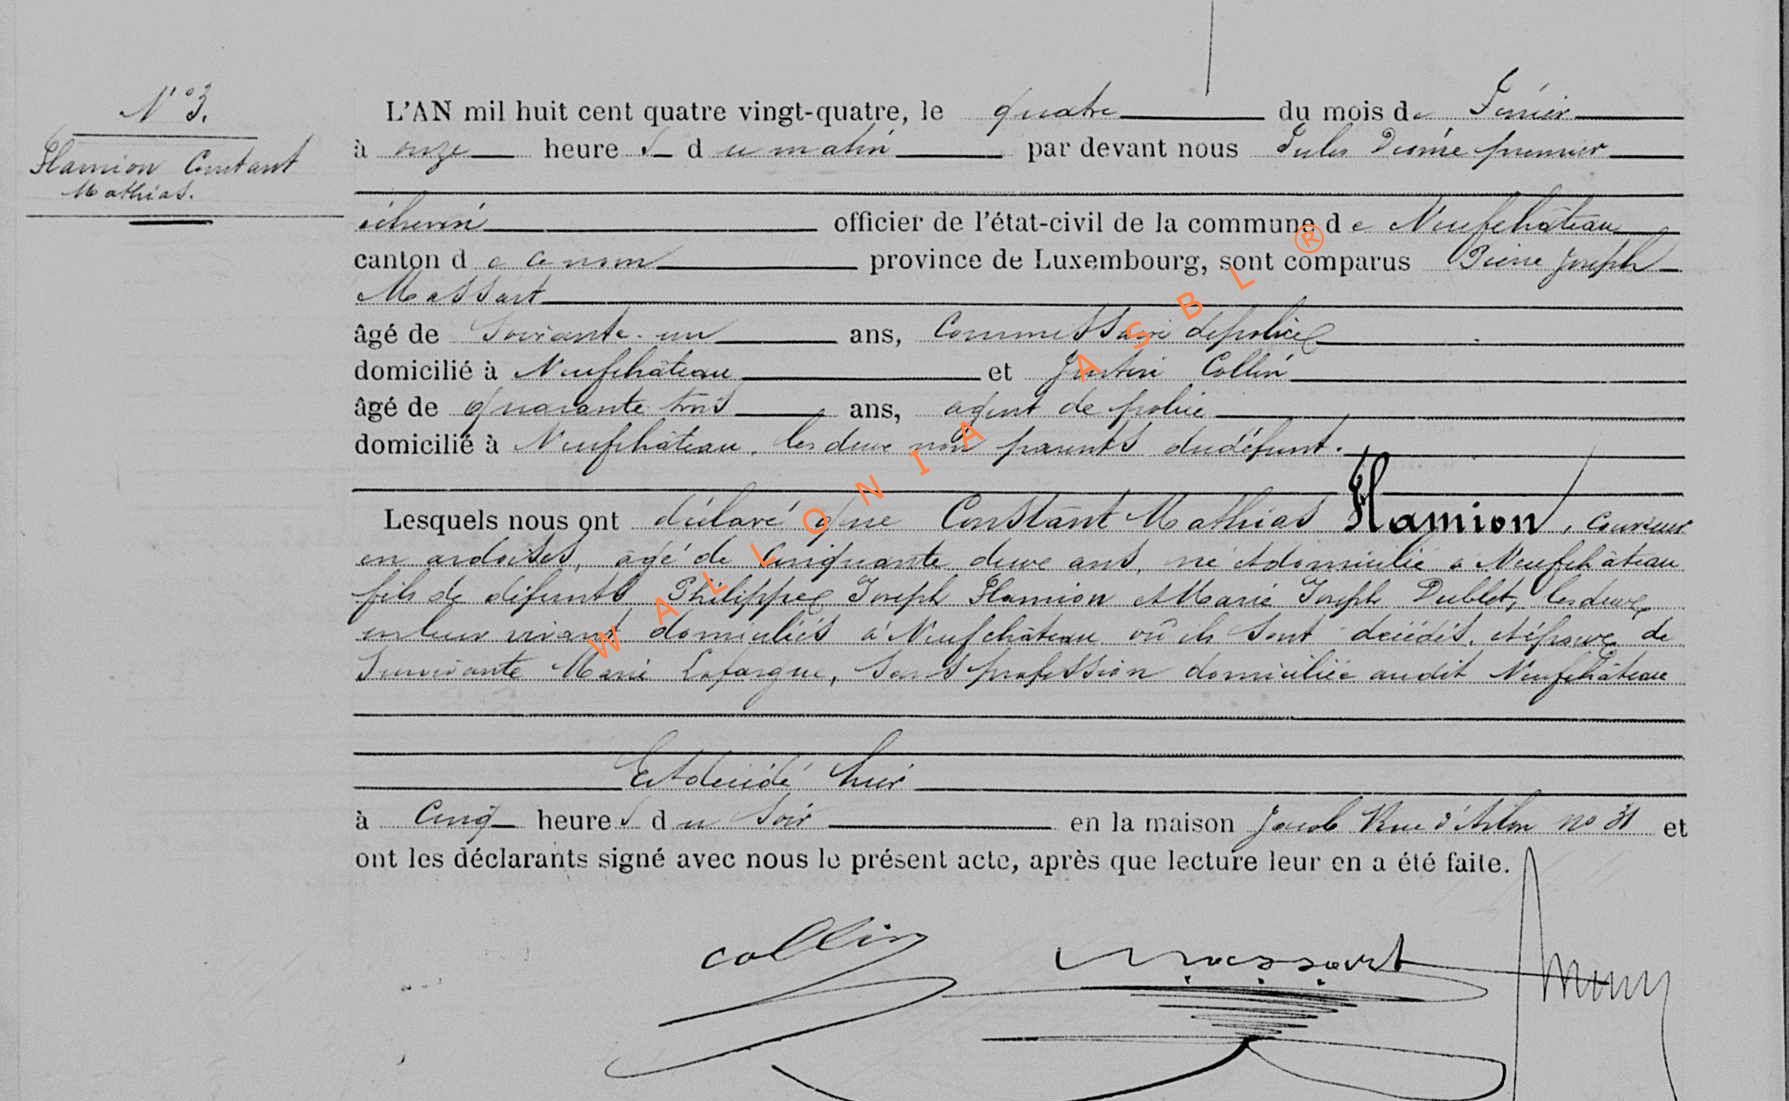 N° 3.
Flamion Constant
Mathias.
L'AN mil huit cent quatre vingt-quatre, le quatre du mois de Février
à onze heure s du matin par devant nous Jules premier
échevin officier de l'état-civil de la commune de Neufchâteau
canton d e ce nom province de Luxembourg, sont comparus Pierre Joseph
Massart
âgé de Soixante-un ans, Commissaire de police
domicilié à Neufchâteau et Justin Collin
âgé de quarante trois ans, agent de police
domicilié à Neufchâteau, les deux non parents du défunt.
Lesquels nous ont déclaré que Constant Mathias Flamion, Couvreur
en ardoises, agé de Cinquante deux ans, né et domicilié à Neufchâteau
fils de défunts Philippe Joseph Flamion et Marie Joseph les deux
en leur vivant domiciliés à Neufchâteau où ils sont décédés, et époux de
Survivante Marie Lafargue, sans profession domiciliée audit Neufchâteau
Est décédé hier
à Cinq heure s du Soir en la maison Jacob Rue d'Arlon no 31 et
ont les déclarants signé avec nous le présent acte, après que lecture leur en a été faite.
Collin Massart
WALLONIA ASBL ®